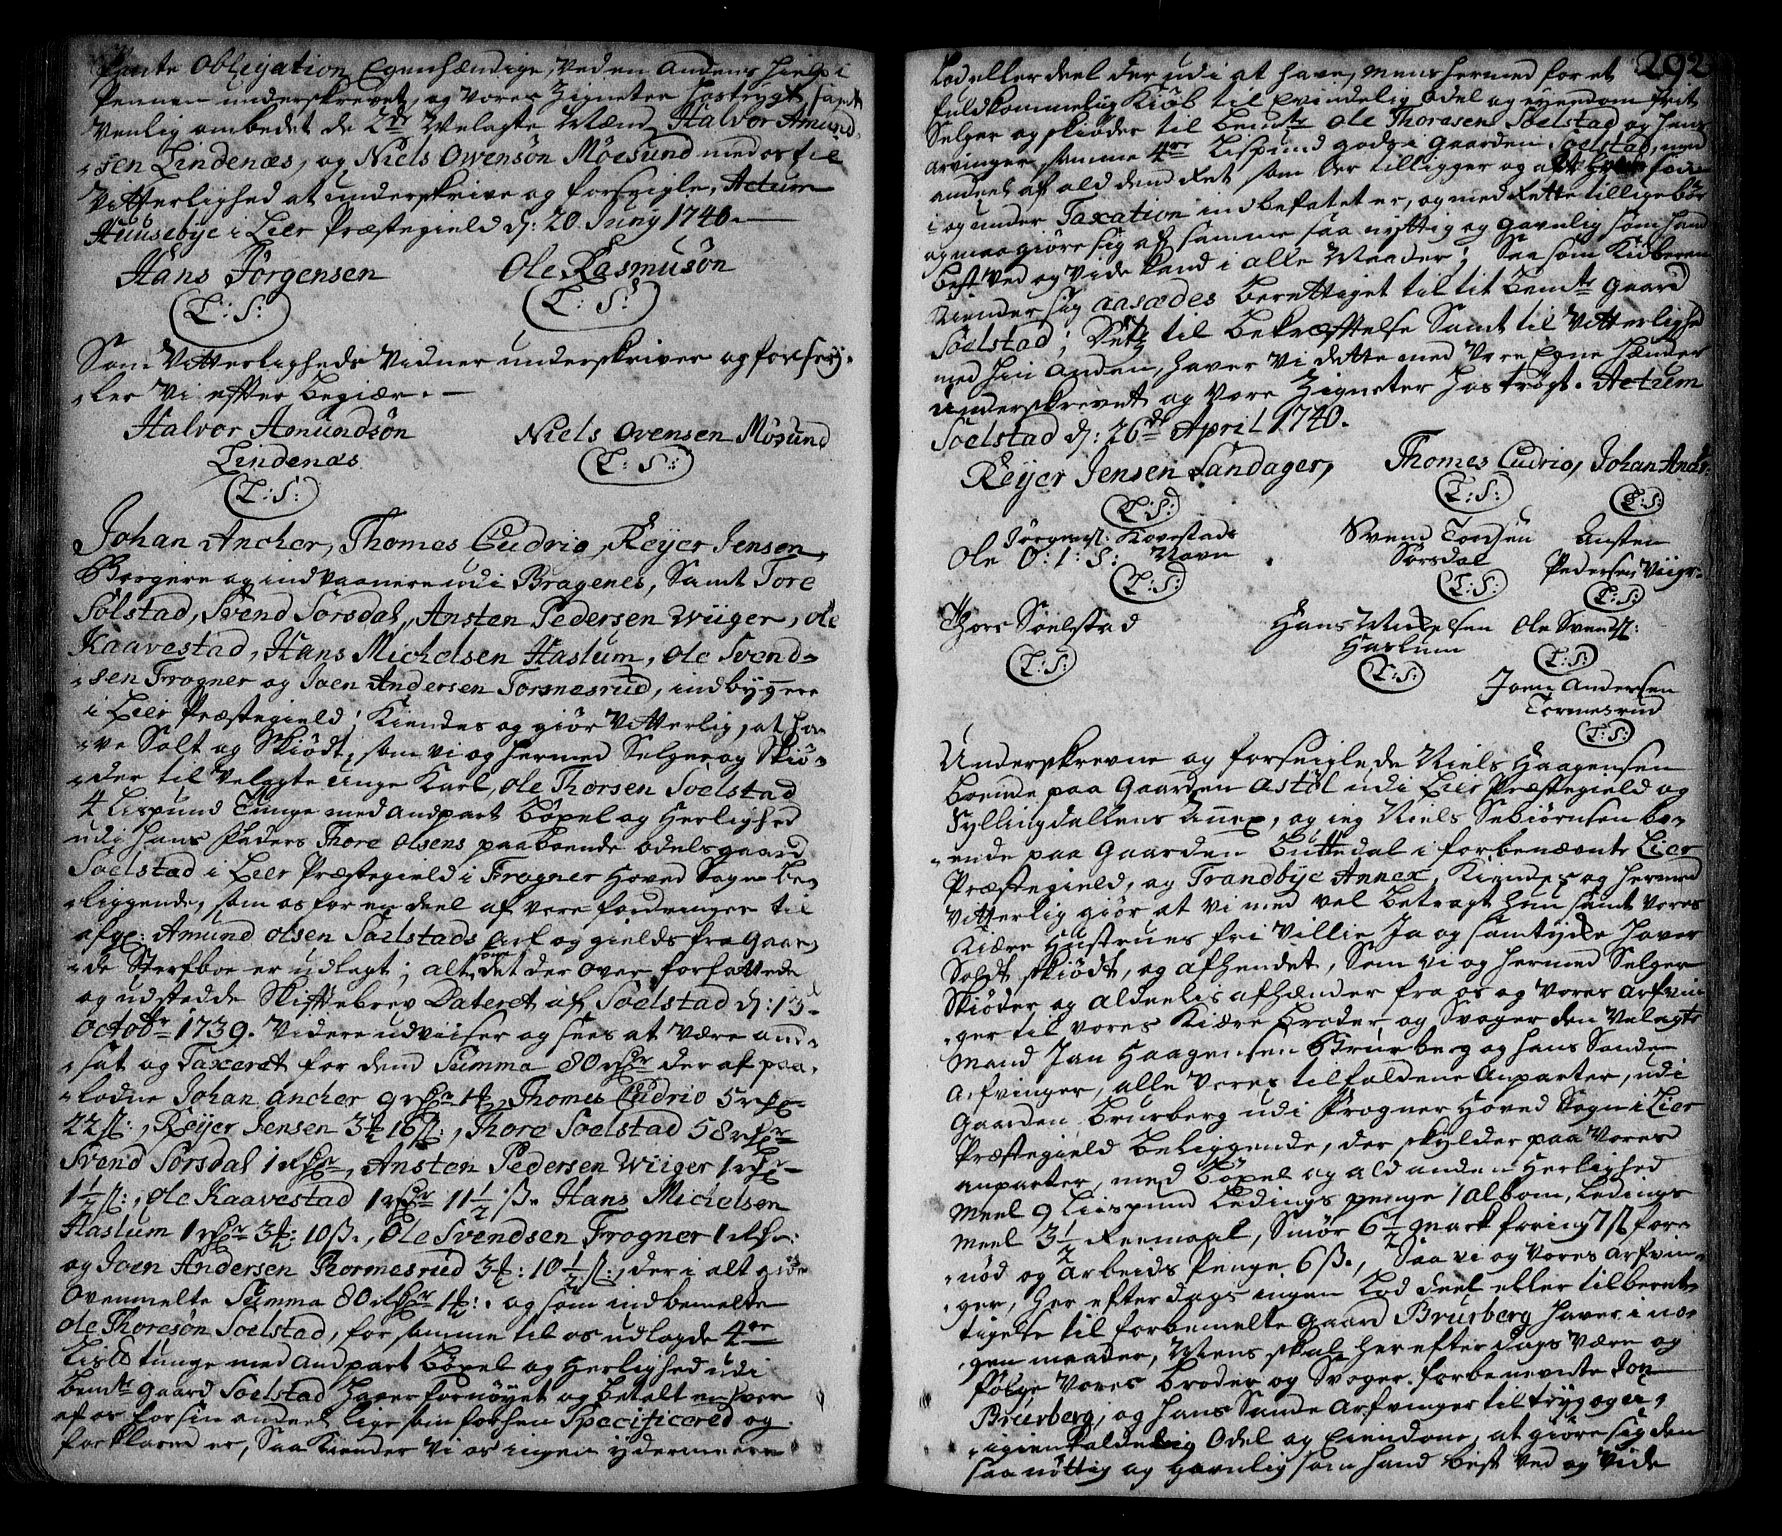 Pante Obligation Egenhændige, Ved en Andens Hielp i
Pennen underskrevet, og Vores Zigneter hostrygt, samt
Venlig ombedet de 2de Velagte Mænd Halvor Amund-
sen Lindenæs, og Niels Owensøn Mösund med os til
Vitterlighed at underskrive og forseigle, Actum
Huusebye i Lier Præstegield d: 20 Juny 1740.
Hans Jörgensen Ole Rasmusön
(L:S:) (L:S:)
Som Vitterligheds Vidner underskriver og forseig-
ler Vi efter begiær.
Halvor Amundsön Niels Ovensen Mösund
Lindenæs (L:S:)
(L:S:)
Johan Ancher, Thomes Cudrio, Reyer Jensen,
Borgere og indvaanere udi Bragenes, Samt Tore
Sölstad, Svend Sörsdal, Ansten Pedersen Wiiger, Ole
Kaavestad, Hans Michelsen Haslum, Ole Svend-
sen Frogner og Joen Andersen Tormesrud, indbyggere
i Lier Præstegield; Kiendes og giör Vitterlig, at ha-
ve Solt og Skiödt, som vi og hermed Selger og Skiö-
der til Velagte unge Karl, Ole Thorsen Soelstad
4 Lispund Tunge med Andpart Böxel og Herlighed
udi hans Faders Thore Olsens paaboende odelsgaard
Soelstad i Lier Præstegield i Frogner Hoved Sogn be-
liggende, som os for en deel af vore fordringer til
afg: Amund Olsen Soelstads Arf og gields fra Gaar-
de Sterfboe er udlagt; alt som det der over forfattede
og udstædde Skiftebrev Dateret af Soelstad d: 13
Octobr 1739. Videre udviiser og sees at Være and-
sat og Taxeret for dend Summa 80 rdr der af paa-
lodne Johan Ancher 9 rdr 1 , Thomes Cudrio 5 rdr
22 ß:, Reyer Jensen 3 16 ß:, Thore Soelstad 58 rdr
Svend Sörsdal 1 rdr, Ansten Pedersen Wiiger 1 rdr
1½ ß:, Ole Kaavestad 1 rdr 11½ ß. Hans Michelsen
Haslum 1 rdr 3 : 10 ß., Ole Svendsen Frogner 1 rdr:
og Joen Andersen Thormesrud 3 : 10½ ß:, der i alt giör
Ovenmelte Summa 80 rdr 1 : og som indbemelte
Ole Thoresön Soelstad, for samme til os udlagde 4re
Lisld tunge med Andpart Böxel og Herlighed udi
bemte Gaard Soelstad Haver fornöyet og betalt en hver
af os for sin andeel lige som forhen Specificered og
forklaret er, Saa Kiender Vi os ingen ydermeere
292
Lod eller deel der udi at have, mens hermed for et
fuldkommelig Kiöb til Evindelig Odel og eyendom frit
Selger og skiöder til bemte Ole Thoresen Soelstad og hans
Arvinger samme 4re Lispund gods i Gaarden Soelstad, med
andeel af ald dend Ret som der tilligger og
i og under Taxation indbefatet er, og med Rette tilligebör
og maa giöre sig af samme saa nyttig og gavnlig som hand
best Ved og Vide kand i alle Maader; Saa som Kiöberen
Kiender sig aasædes berettiget til tit bemte Gaard
Soelstad; Dets til bekræfftelse Samt til Vitterlighed
med hin Anden, haver Vi dette med Vore Egne Hænder
underskrevet og Vore Zigneter hoströgt. Actum
Soelstad d: 26de April 1740.
Reyer Jensen Landager, Thomes Cudrio, Johan Anch:
(L:S:) (L:S:) (L:S:)
Jörgens: Kovestads Svend Tordsen Ansten
Ole O:1:S: Navn Sörsdal Pedersen Viiger
(L:S:) (L:S:) (L:S:)
Thors Söelstad Hans Mickelsen Ole Svends:
(L:S:) Haslum (L:S:)
(L:S:) Joen Andersen
Tormesrud
(L:S:)
Underskrevne og forseiglede Niels Haagensen
boende paa Gaarden Astöl udi Lier Præstegield og
Syllingdallens Anex, og ieg Niels Sebiörnsen bo-
ende paa Gaarden Buttedal i forbenævnte Lier
Præstegield, og Trandbye Annex, Kiendes og hermed
Vitterlig giör at vi med vel betragt hun samt Vores
Kiære Hustrues fri Villie Ja og samtycke haver
Soldt skiödt, og afhendet, Som Vi og hermed Selger
Skiöder og aldeelis afhænder fra os og Vores arfvin-
ger til Vores Kiære broder og Svoger den Velagte
Mand Jan Haagensen Brurberg og hans Sande
Arfvinger, alle Vores tilfaldene Anparter, udi
Gaarden Brurberg udi Frogner Hoved Sogn i Lier
Præstegield beliggende, der skylder paa Vores
anparter, med Böxel og ald anden Herlighed
Meel 9 Liispund Ledings penge 1 albom, Ledings
Meel 3½ Reemaal, Smör 6½ mark foring 7 ß for-
nöd og Arbeids Penge 6 ß., Saa vi og Vores arfvin-
ger, her efter dags ingen Lod Deel eller tilberet-
tigelse til forbemelte Gaard Brurberg haver i no-
gen maader, Mens skal her efter dags Være og
fölge Vores broder og Svoger forbenevnte Jon
Brurberg, og hans Sande Arfvinger til tryg og er,
igienkaldelig Odel og Eiendom, at giöre sig den
saa nöttig og gavnlig som hand best Ved og Vide